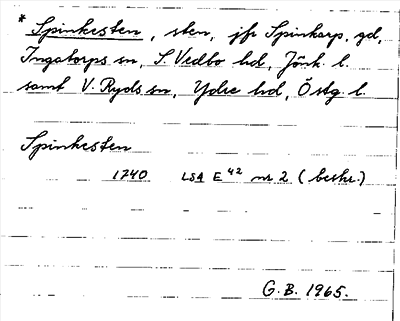 * Spinkesten, sten, jfr Spinkarp, gd,
Ingatorps sn, S. Vedbo hd, Jönk. l.
samt V. Ryds sn, Ydre hd, Östg. l.
Spinkesten
1740 LSA E 42 nr 2 (beskr.)
G.B. 1965.